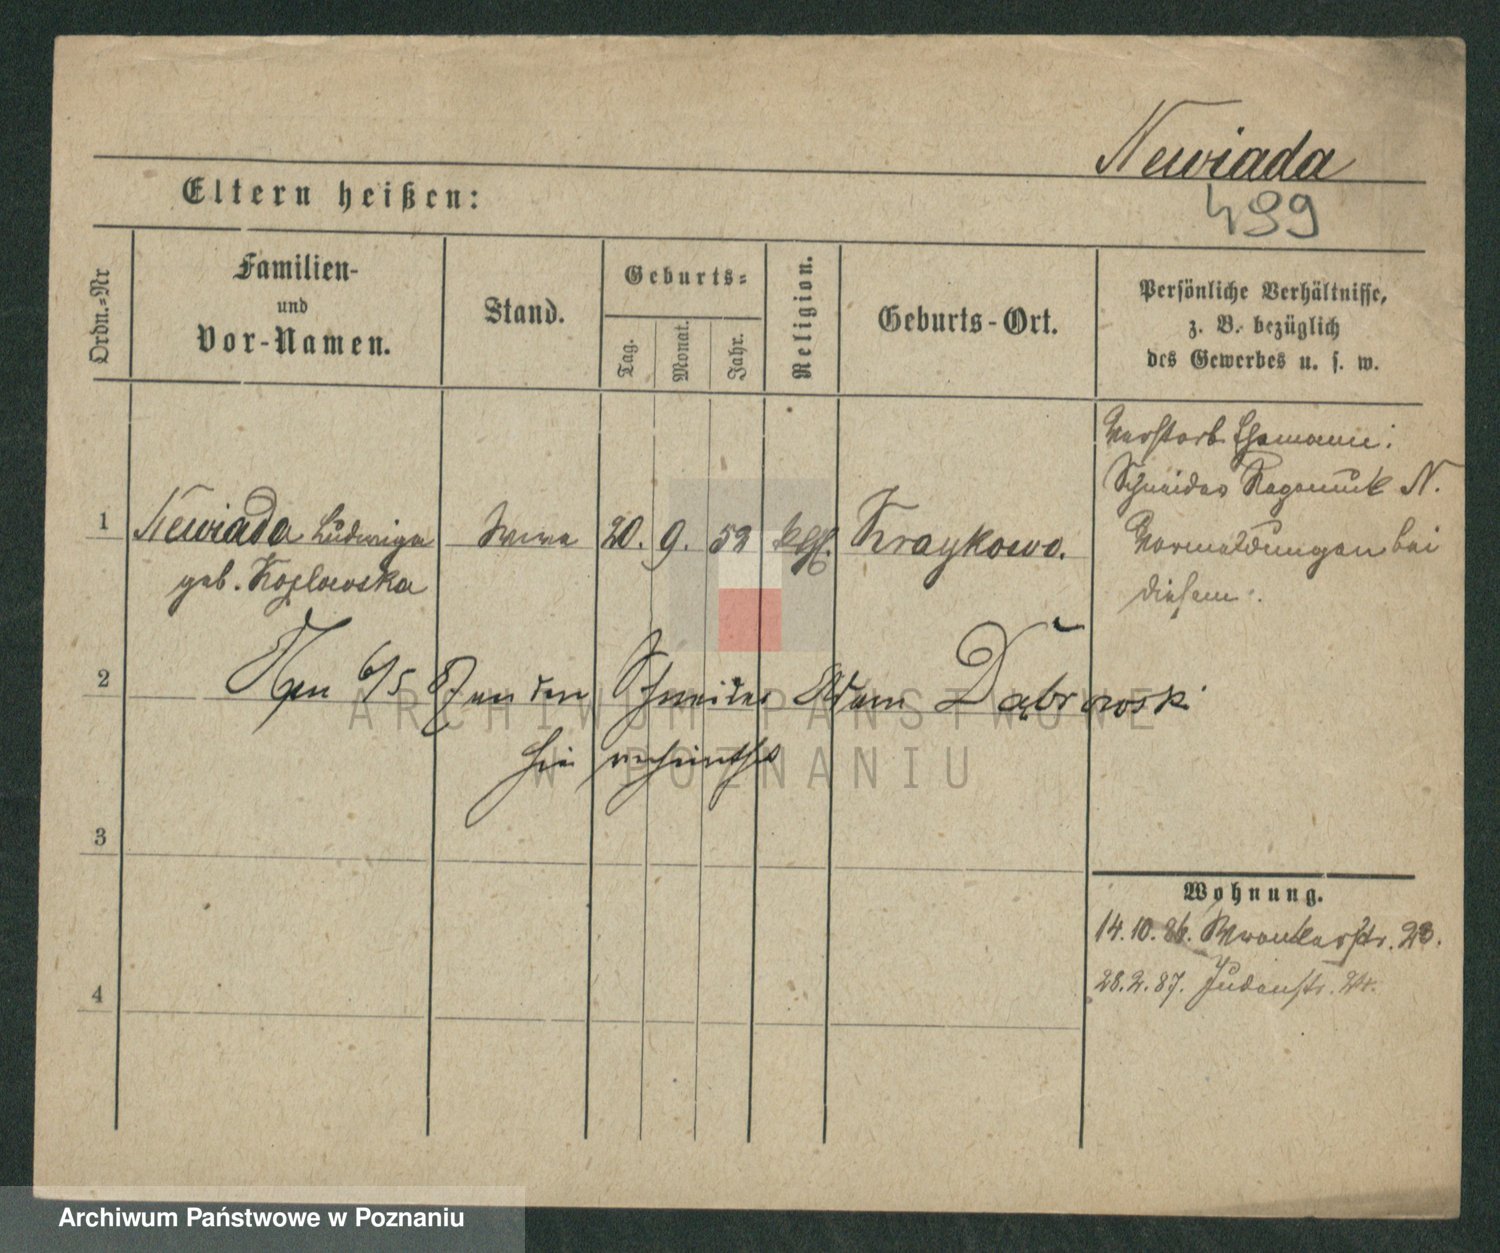 Newiada
499
Eltern heißen:
Ordn.=Nr
Familien-
und
Vor-Namen.
Stand.
Geburts=
Tag.
Monat.
Jahr.
Religion.
Geburts-Ort.
Persönliche Verhältnisse,
z. B. bezüglich
des Gewerbes u. s. w.
Verstorb. Ehemann:
Schneider N.
1 Newiada Ludwiga Wwe 20. 9. 52 kath. Kraykowo.
geb. Kozlowska
Vormeldungen bei
diesem.
2 6/5 87 an den Schneider Adam Dąbrowski
hier verheirathet
3
Wohnung.
14.10.86. Wronkerstr. 23.
28.2.87. Judenstr.
4
ARCHIWUM PAŃSTWOWE
W POZNANIU
Archiwum Państwowe w Poznaniu